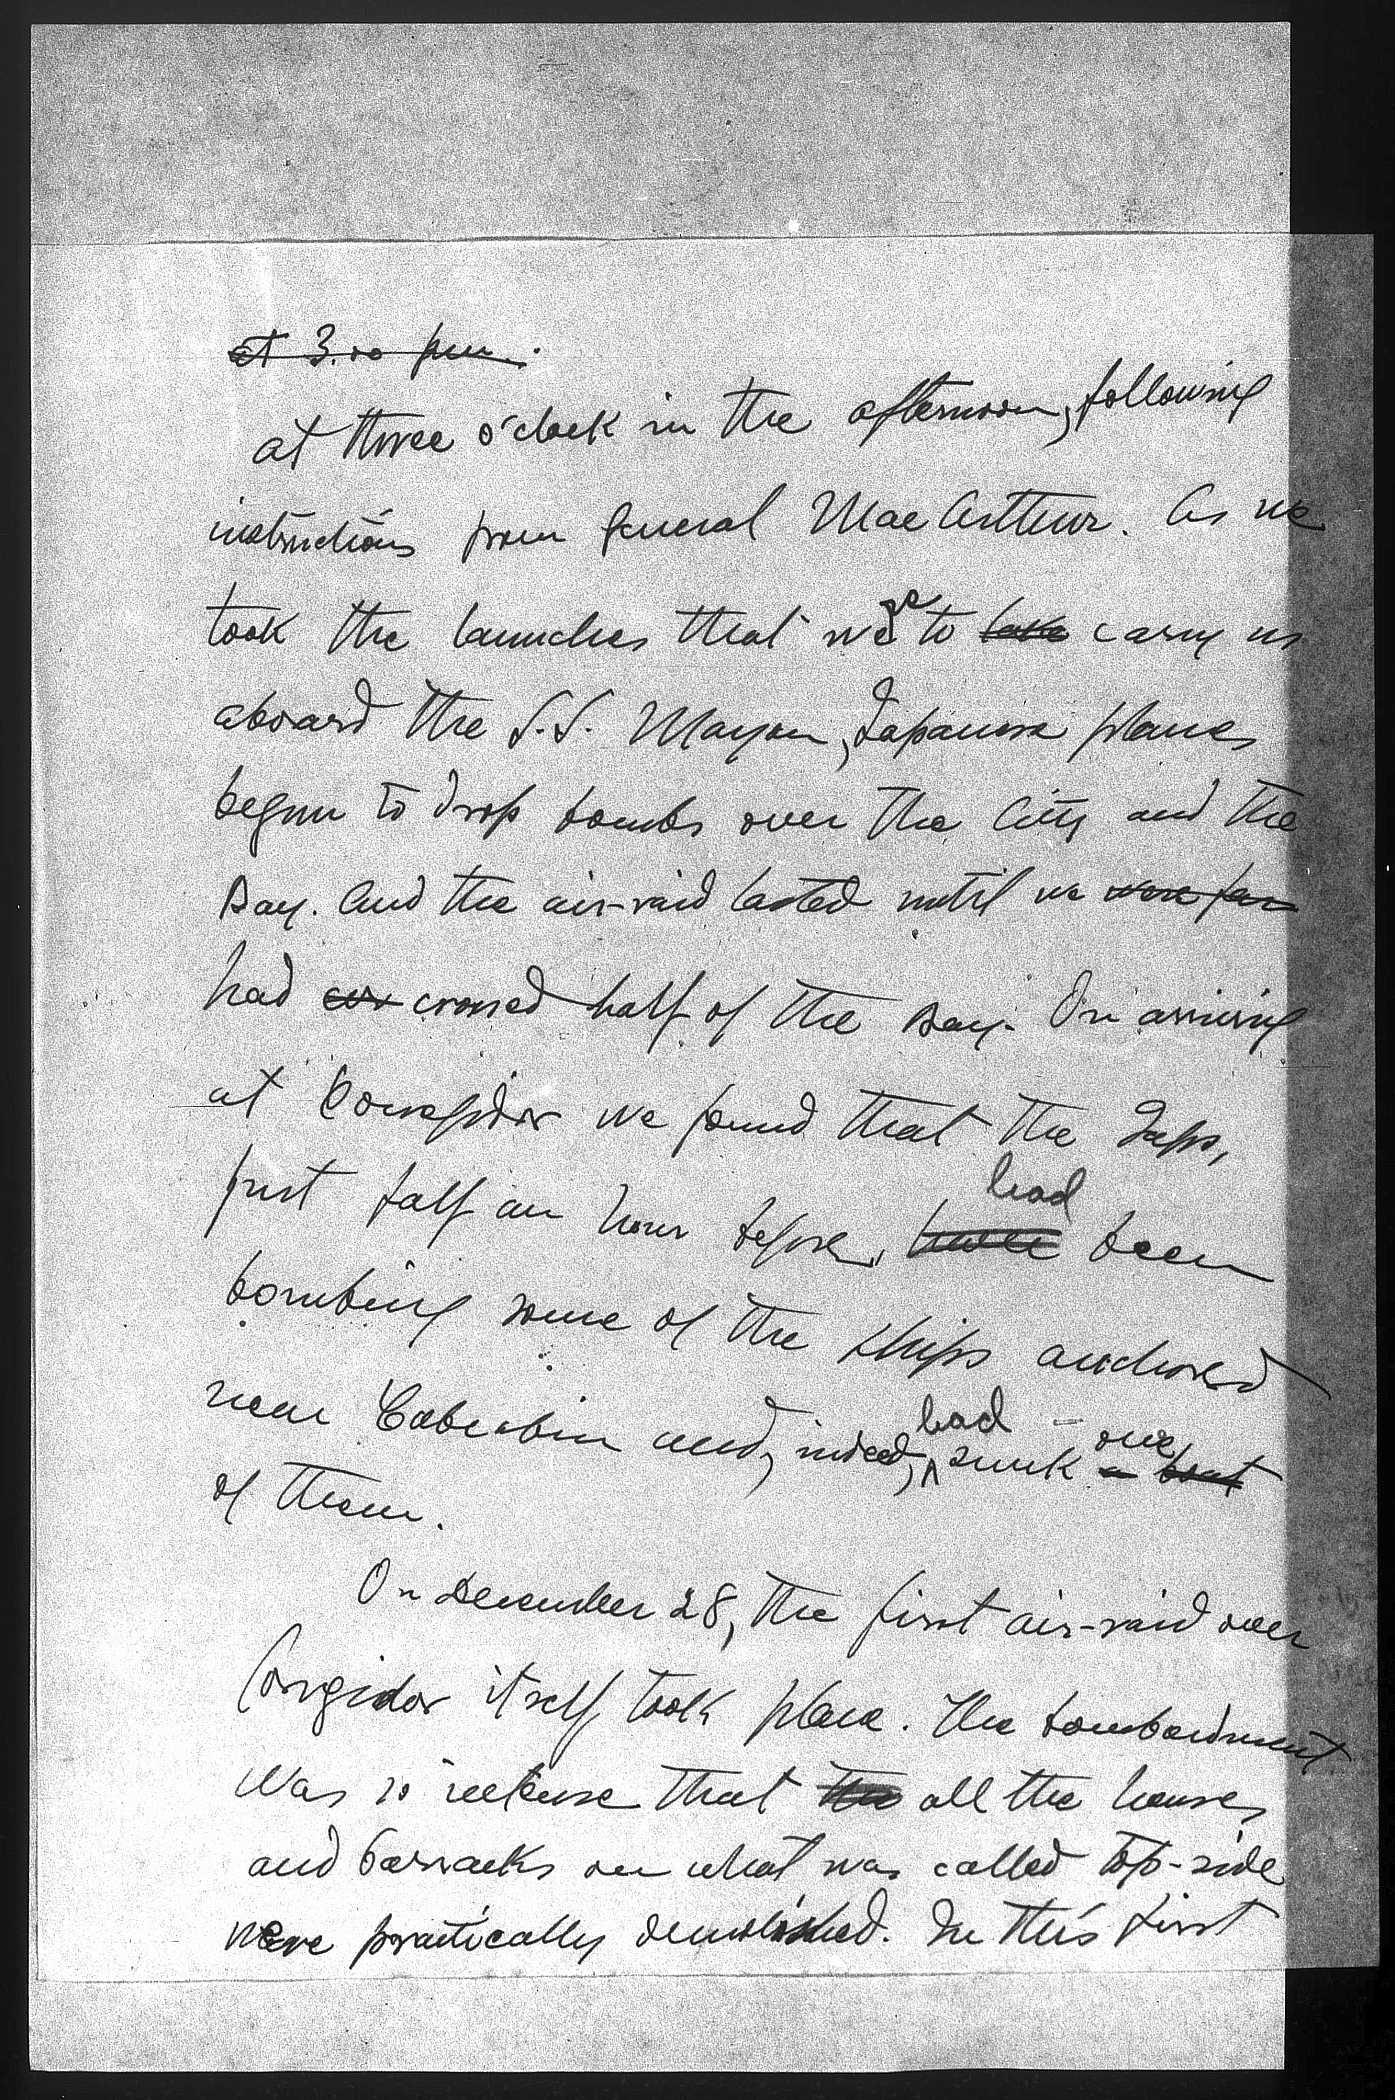 at 3.00 pm.
at three o'clock in the afternoon, following
instructions from General MacArthur. As we
took the launches that were to take carry us
aboard the S.S. Mayon, Japanese planes
begun to drop bombs over the City and the
Bay. And the air-raid lasted until we were far
had cor crossed half of the Bay. On arriving
at Corregidor we found that the Japs,
just half an hour before, have had been
bombing some of the ships anchored
near Cabcabin and, indeed, had sunk a boat one
of them.
On December 28, the first air-raid over
Corregidor itself took place. The bombardment
was so intense that the all the houses
and barracks on what was called top-side
were practically demolished. In this first